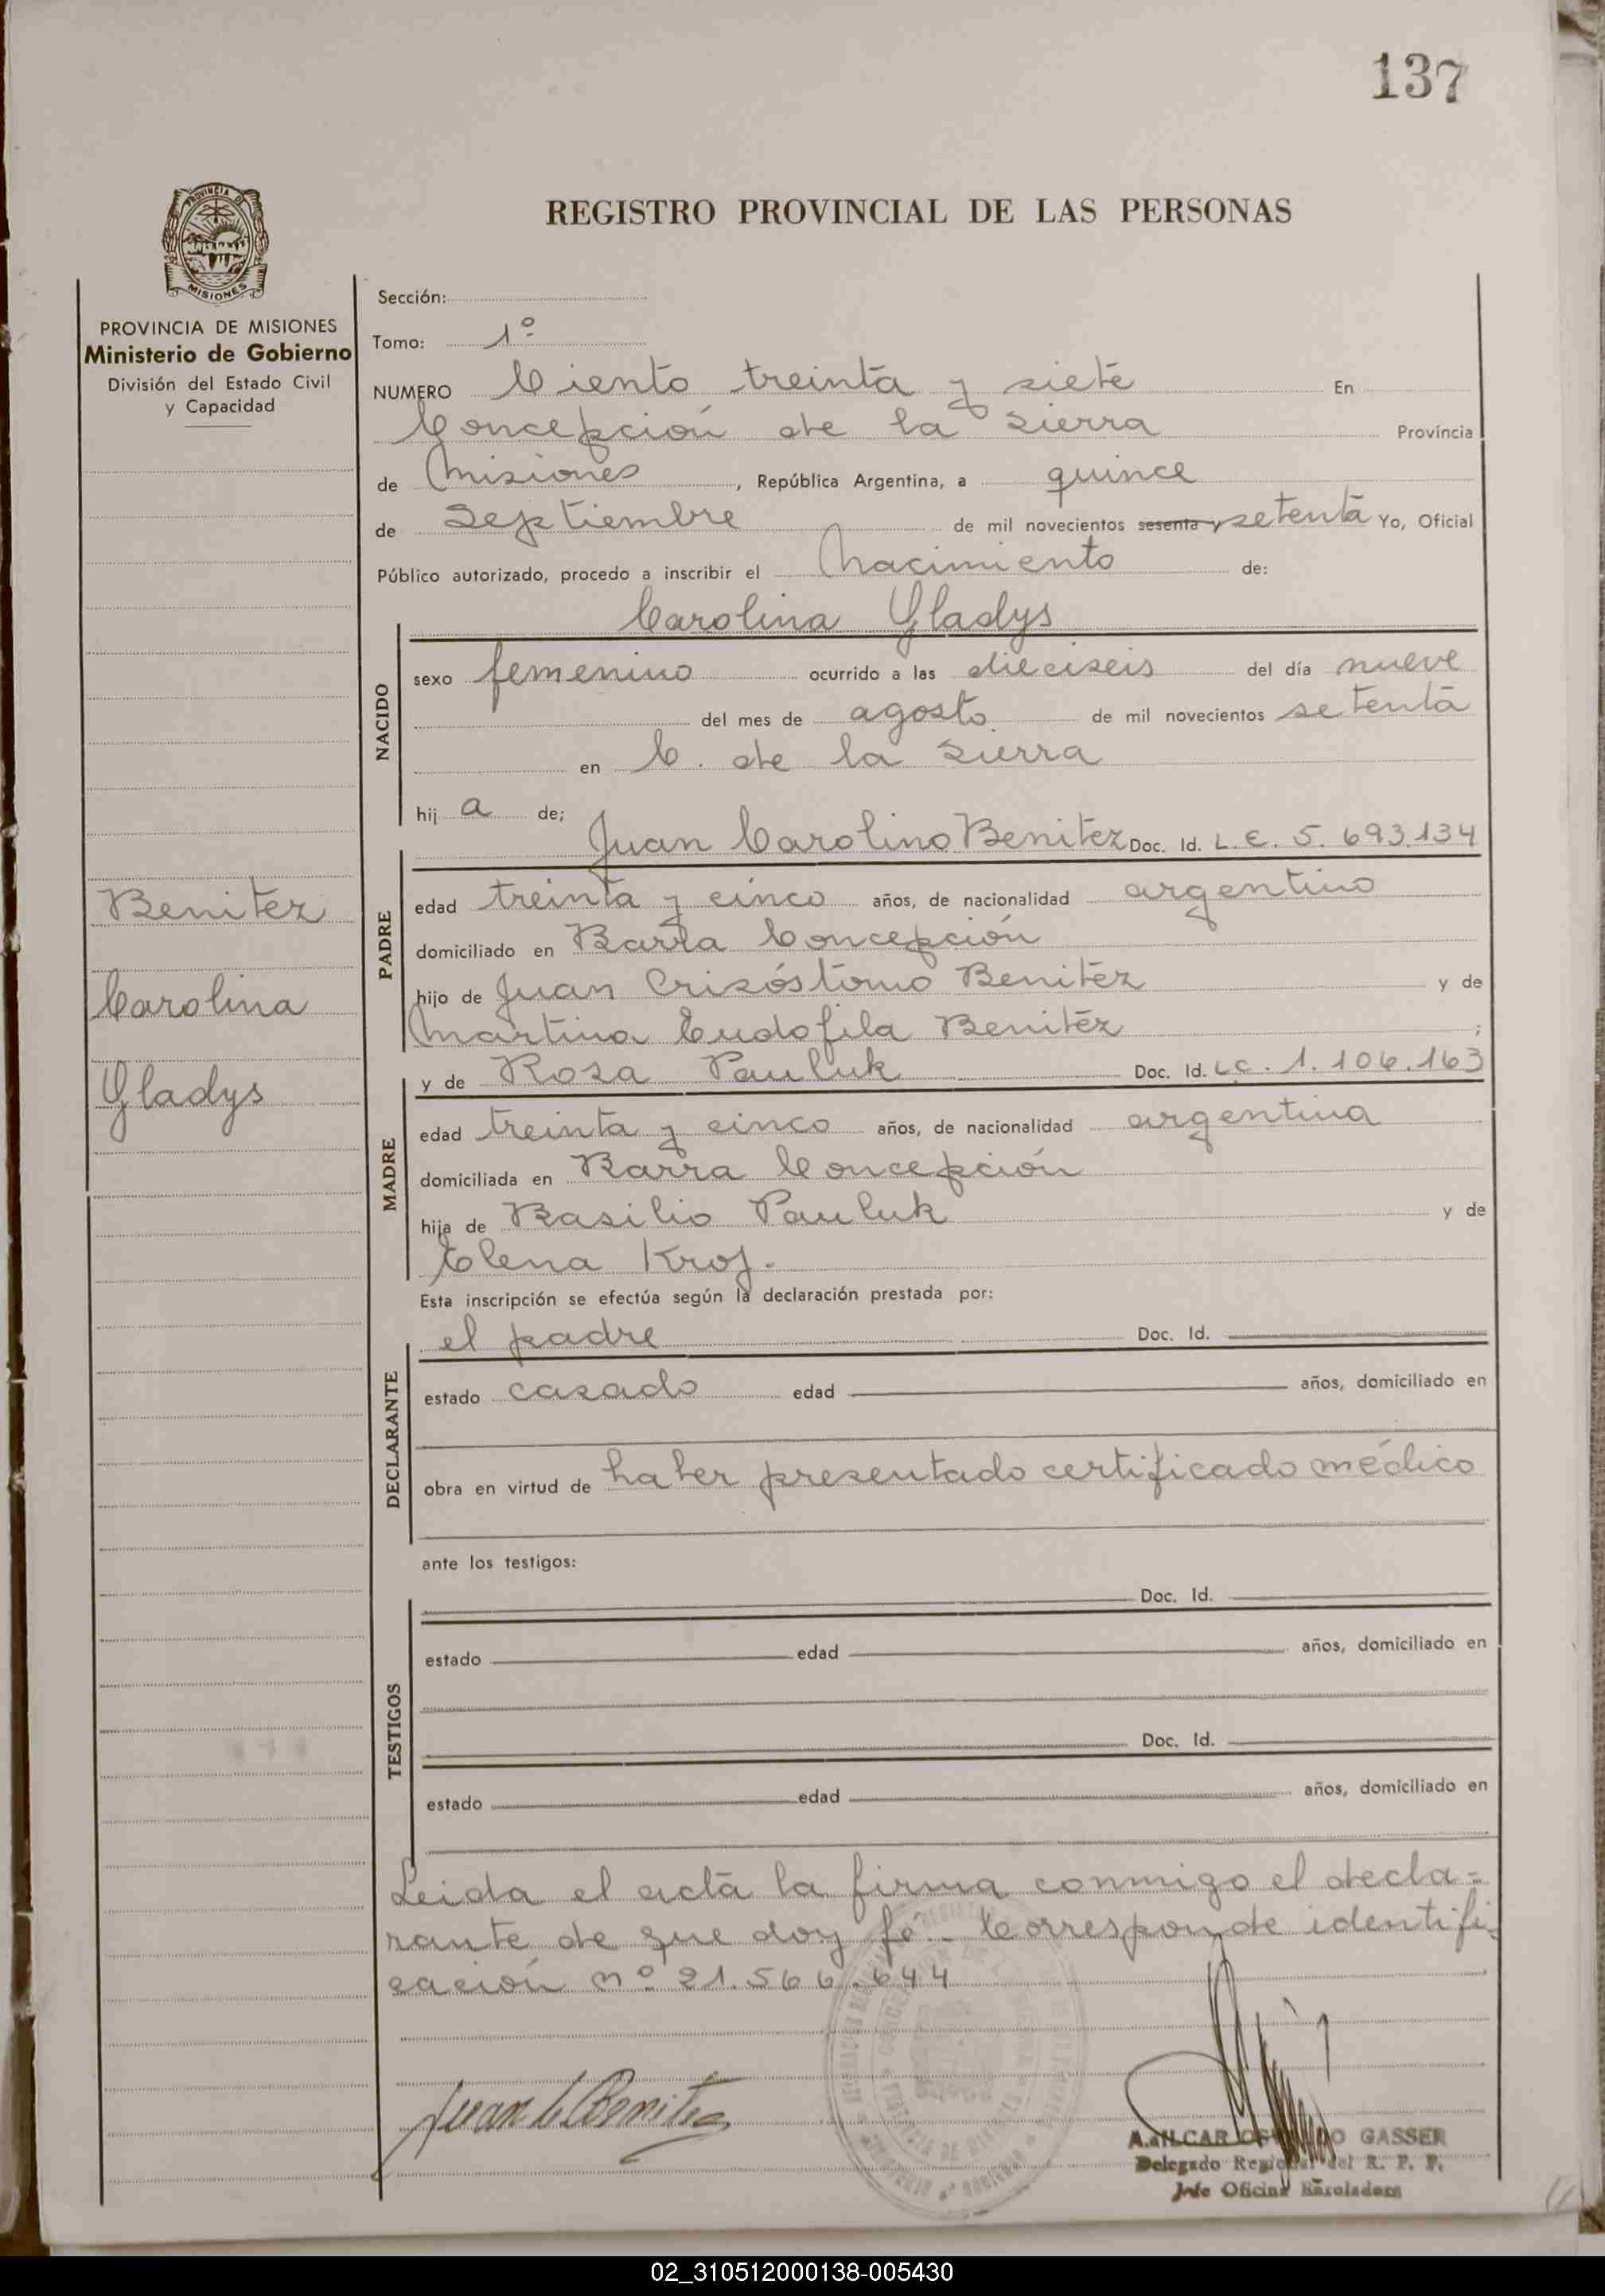 137
REGISTRO PROVINCIAL DE LAS PERSONAS
PROVINCIA DE MISIONES
PROVINCIA DE MISIONES
Ministerio de Gobierno
División del Estado Civil
y Capacidad
Benitez
Carolina
Gladys
Sección:
Tomo: 1º
NUMERO Ciento treinta y siete En
Concepción de la Sierra Provincia
de Misiones, República Argentina, a quince
de Septiembre de mil novecientos sesenta y setenta Yo, Oficial
Público autorizado, procedo a inscribir el Nacimiento de:
Carolina Gladys
NACIDO
sexo femenino ocurrido a las dieciseis del día nueve
del mes de agosto de mil novecientos setenta
en C. de la Sierra
hij a de;
Juan Carolino Benitez Doc. Id. L.E. 5.693.134
PADRE
edad treinta y cinco años, de nacionalidad argentino
domiciliado en Barra Concepción
hijo de Juan Crisóstomo Benitez y de
Martina Eudofila Benitez ;
y de Rosa Pauluk Doc. Id. L.C. 1.106.163
MADRE
edad treinta y cinco años, de nacionalidad argentina
domiciliada en Barra Concepción
hija de Basilio Pauluk y de
Elena Kroj.
Esta inscripción se efectúa según la declaración prestada por:
el padre Doc. Id.
DECLARANTE
estado casado edad años, domiciliado en
obra en virtud de haber presentado certificado médico
ante los testigos:
Doc. Id.
TESTIGOS
estado edad años, domiciliado en
Doc. Id.
estado edad años, domiciliado en
Leida el acta la firma conmigo el decla-
rante de que doy fé.. Corresponde identifi
cación nº 21.566.644
Juan C Benitez
GASSER
Delegado Regional del R. P. P.
Jefe Oficina
02_310512000138-005430